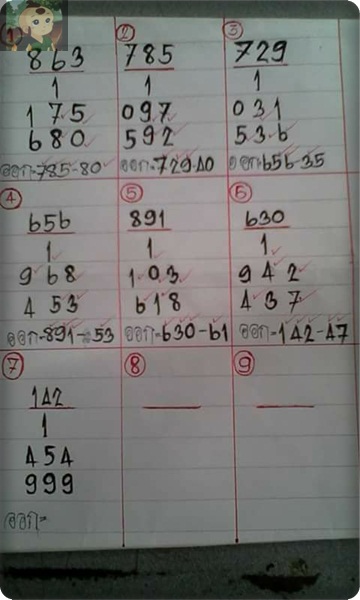 ①
863
1
175
680
ออก=785-80
②
785
1
097
592
ออก=729-40
③
729
1
031
536
ออก=656-35
④
656
1
968
453
ออก=891-53
⑤
891
1
103
618
ออก=630-61
⑥
630
1
942
437
ออก=142-47
⑦
142
1
454
999
ออก=
⑧
⑨